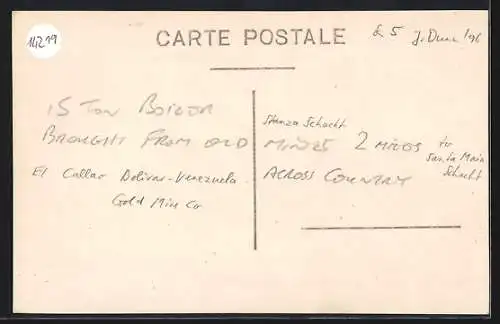 14219
CARTE POSTALE
£5
15 TON BOILER
BROUGHT FROM OLD MINES 2 MILES
ACROSS COUNTRY
El Callao Bolivar-Venezuela
Gold Mine Co
Schacht
to
Santa Maria
Schacht